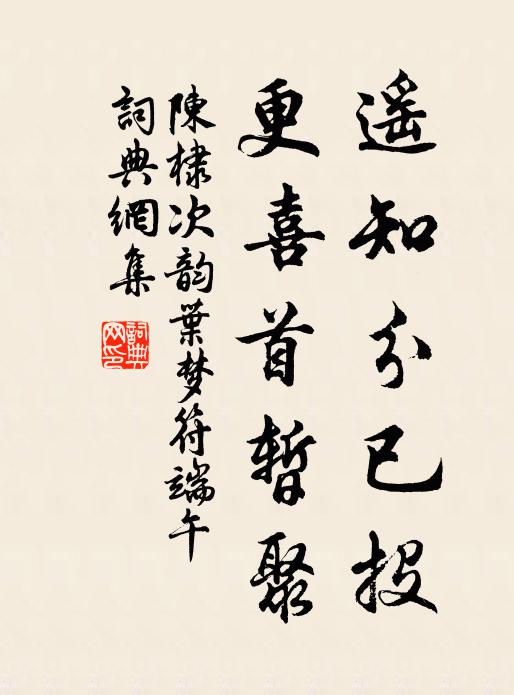 遥知分已投
更喜首暫聚
陳棣次韵葉梦符端午
詞典網集
詞典網印